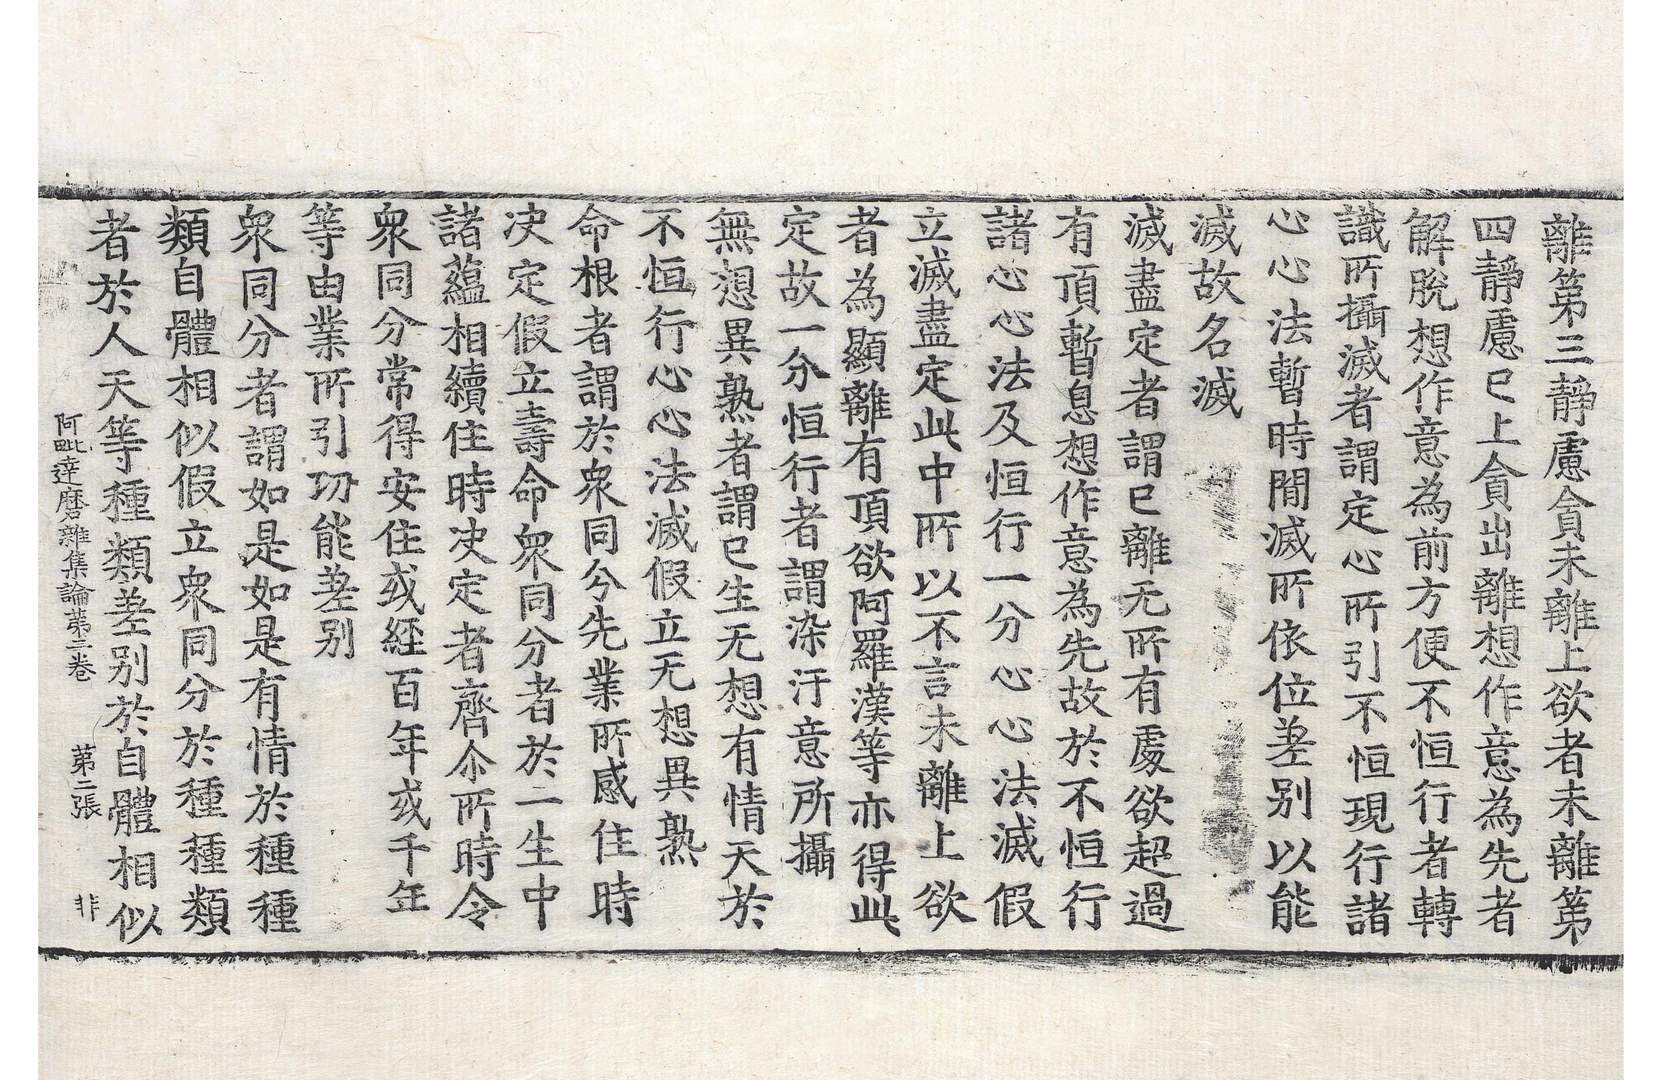 離第三靜慮貪未離上欲者未離第
四靜慮已上貪出離想作意為先者
解脫想作意為前方便不恒行者轉
識所攝滅者謂定心所引不恒現行諸
心心法暫時間滅所依位差別以能
滅故名滅
滅盡定者謂已離无所有處欲超過
有頂暫息想作意為先故於不恒行
諸心心法及恒行一分心心法滅假
立滅盡定此中所以不言未離上欲
者為顯離有頂欲阿羅漢等亦得此
定故一分恒行者謂染汙意所攝
無想異熟者謂已生无想有情天於
不恒行心心法滅假立无想異熟
命根者謂於衆同分先業所感住時
決定假立壽命衆同分者於一生中
諸蘊相續住時決定者齊尒所時令
衆同分常得安住或经百年或千年
等由業所引功能差别
衆同分者謂如是如是有情於種種
類自體相似假立衆同分於種種類
者於人天等種類差别於自體相似
阿毗達磨雜集論苐二卷 苐二張 非